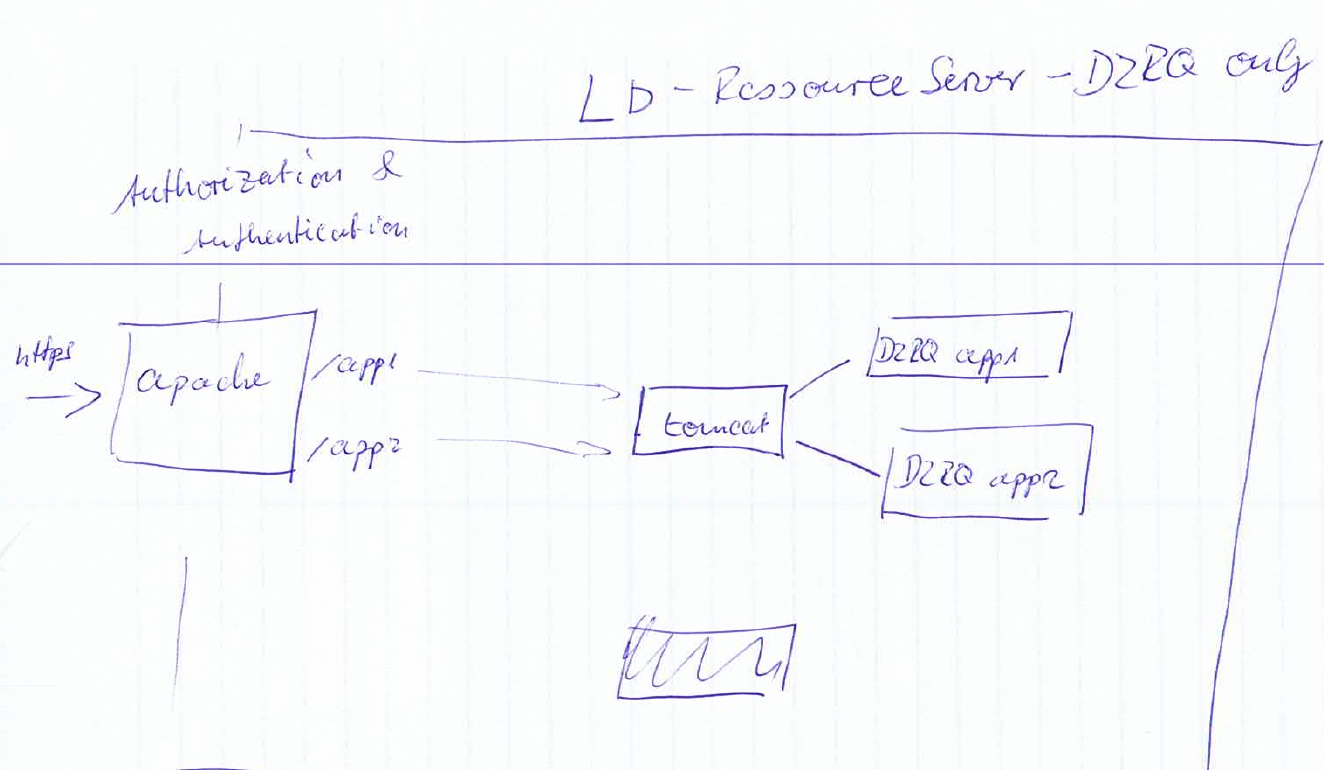 LD - Ressource Server - D2RQ only
Authorization &
Authentication
https
apache
/app1
/app2
tomcat
D2RQ app1
D2RQ app2